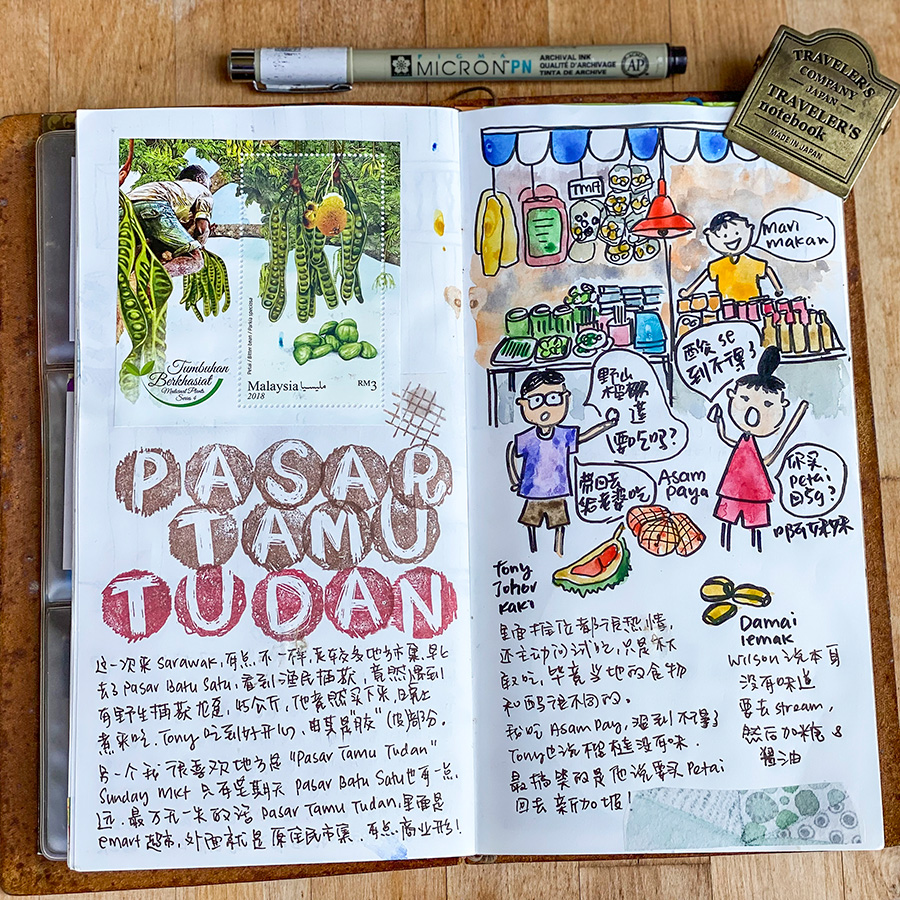 PIGMA
MICRON PN
ARCHIVAL INK
QUALITÉ D'ARCHIVAGE
TINTA DE ARCHIVE
AP
TRAVELER'S
COMPANY
JAPAN
TRAVELER'S
notebook
MADE IN JAPAN
Tumbuhan
Berkhasiat
Medicinal Plants
Series 4
Petai / Bitter bean / Parkia speciosa
Malaysia مليسيا
2018
RM3
PASAR
TAMU
TUDAN
这一次来 Sarawak, 有点不一样, 去较多地方市集. 早上
去了 Pasar Batu Satu, 看到渔民捕获, 竟然遇到
有野生捕获龙趸, 45公斤, 他竟然买下来, 晚上
煮来吃. Tony 吃到好开心, 由其是胶"(假)部份.
另一个我很喜欢地方是 "Pasar Tamu Tudan"
Sunday mkt 只有星期天 Pasar Batu Satu也有一点
远. 最方便来的话 Pasar Tamu Tudan, 里面是
emart 超市, 外面就是原住民市集. 有点商业形!
TMA
mari
makan
酸 se
到不得了
野山
榴梿
要吃吗?
带回去
给老婆吃
Asam
Paya
你买
Petai
回sg?
阿妹妹
Tony
Johor
kaki
里面摊位都很热情,
还主动的试吃, 只是不
敢吃, 毕竟当地的食物
和西马很不同的.
我吃 Asam Pay, 涩到不得了
Tony也说榴梿没有味.
最搞笑的是他说要买 Petai
回去新加坡!
Damai
lemak
Wilson 说本身
没有味道
要去 stream,
然后加糖 &
酱油